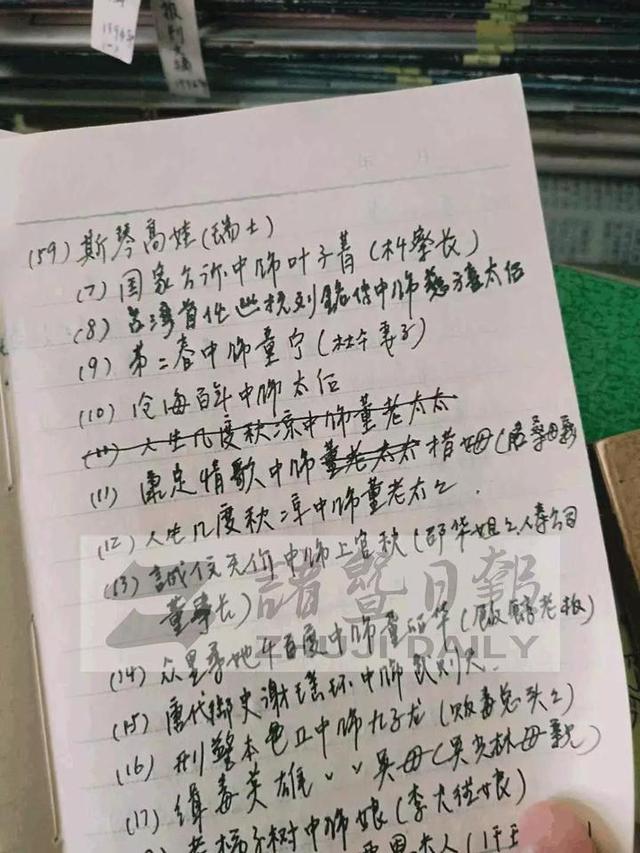 年 月
(59) 斯琴高娃(瑞士)
(7) 国家公诉中饰叶子菁(检察长)
(8) 台湾首任巡抚刘铭传中饰慈禧太后
(9) 第二春中饰童宁(妻子)
(10) 沧海百年中饰太后
(11) 人生几度秋凉中饰董老太太
(11) 康定情歌中饰董老太太措姆(母亲
(12) 人生几度秋凉中饰董老太太.
(13) 誠信无价中饰上官秋(邵华姐姐、公司
董事长)
諸暨日報
ZHUJI DAILY
(14) 众里寻她千百度中饰华(饭馆老板)
(15) 唐代御史谢瑶环中饰武则天.
(16) 刑警本色中饰九子龙(贩毒总头目)
(17) 缉毒英雄〃〃吴母(吴光林母亲)
老杨子树中饰娘(李大娘)
夫人(